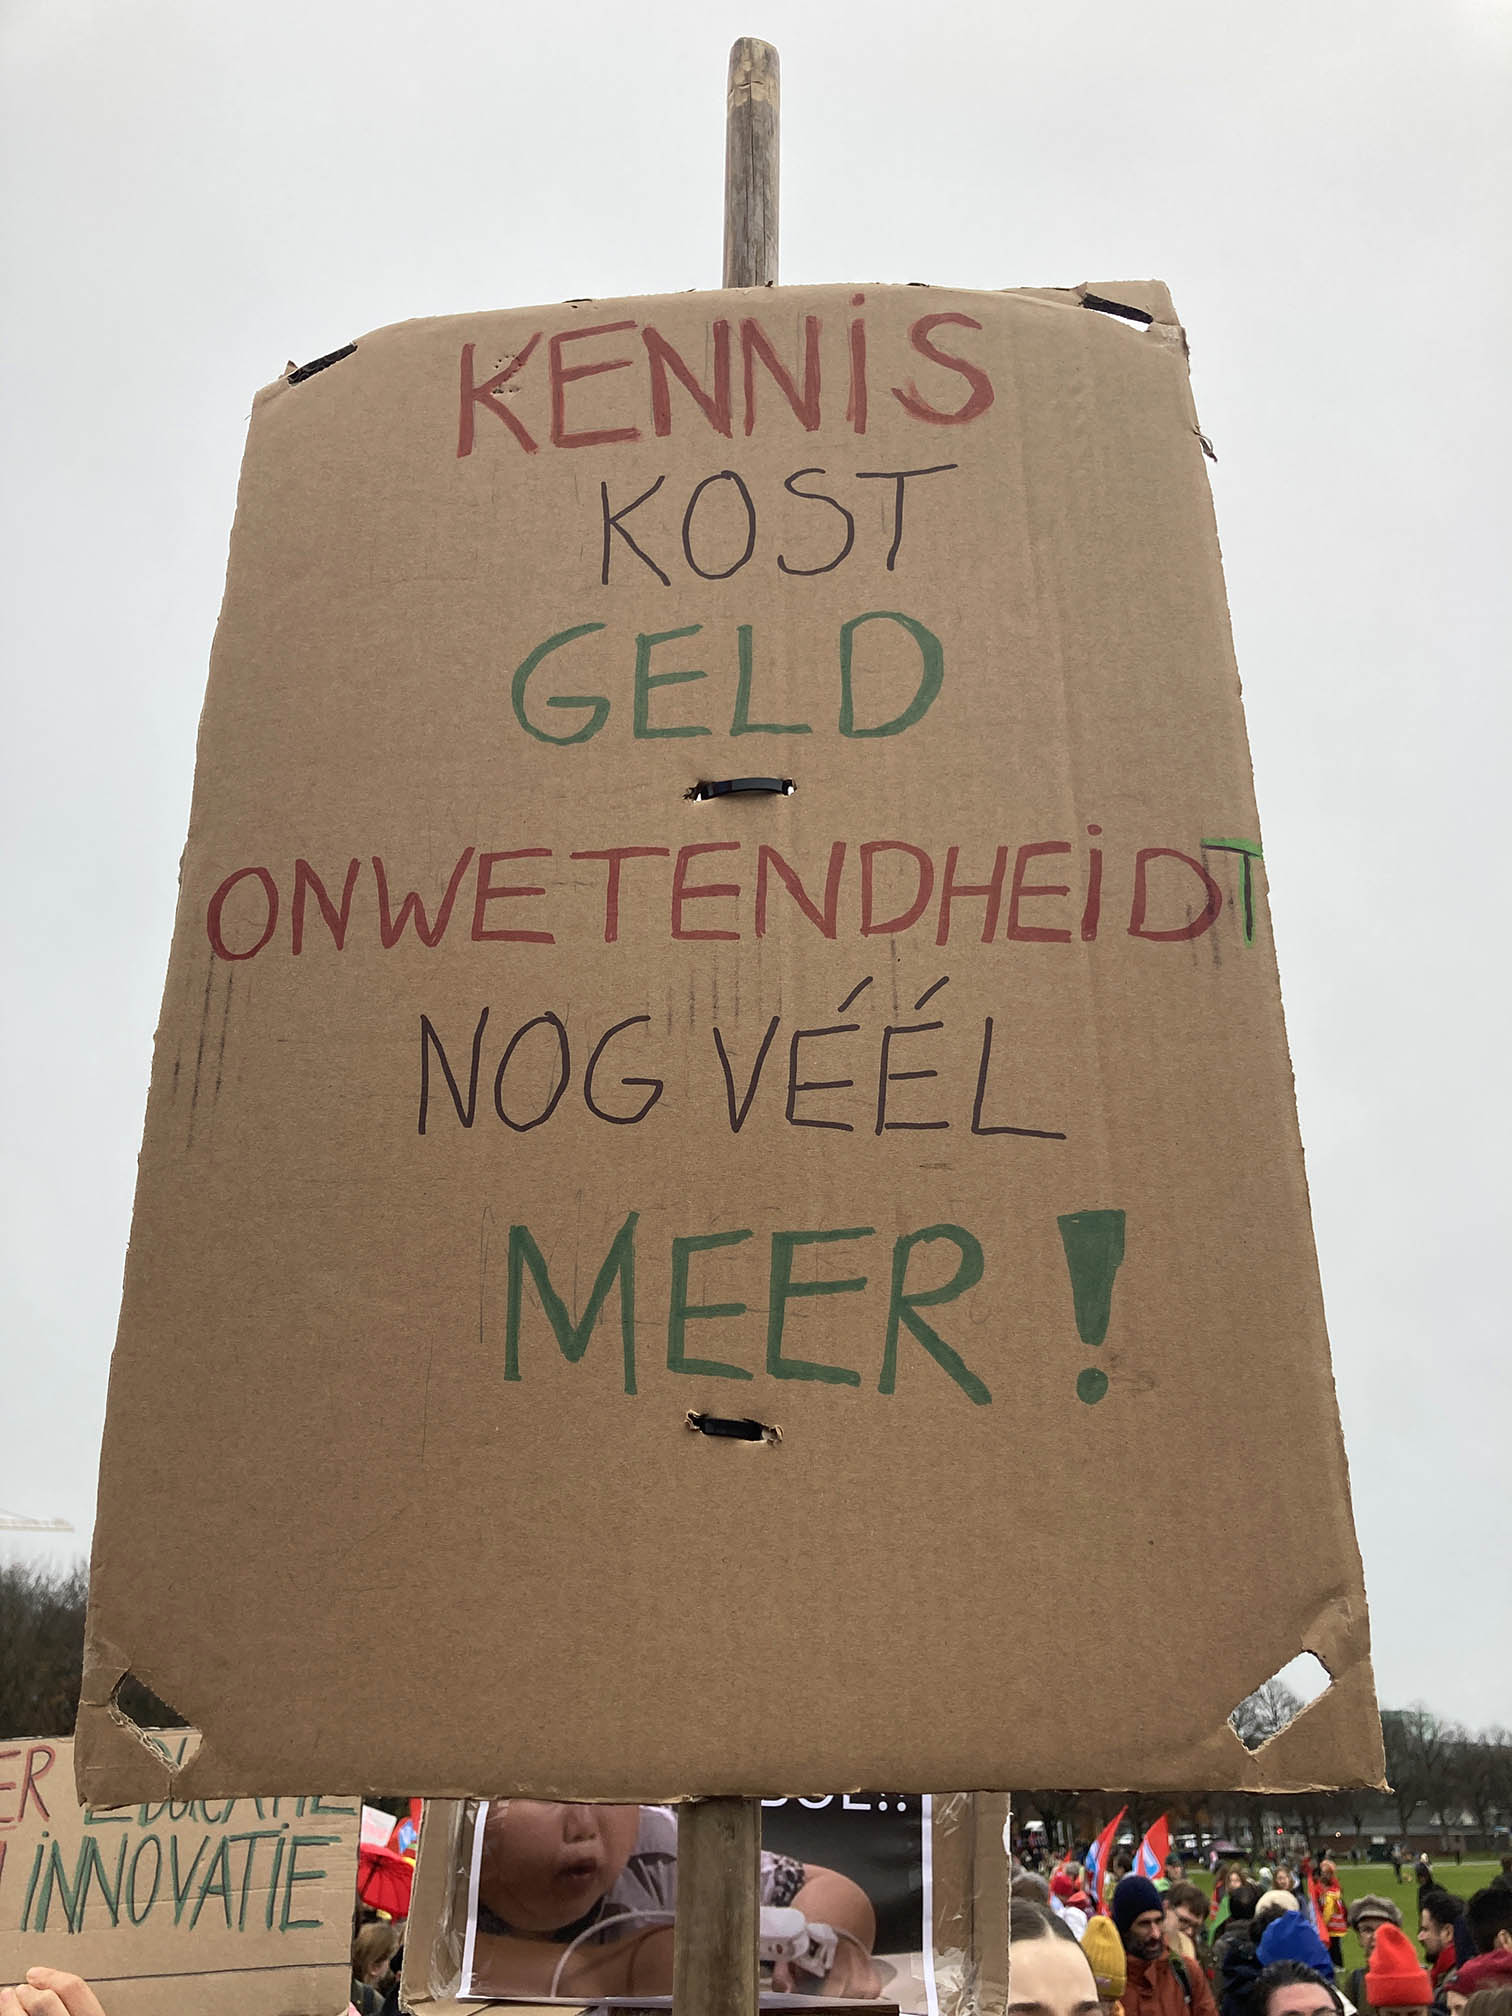 KENNIS
KOST
GELD
ONWETENDHEIDT
NOG VÉÉL
MEER!
EDUCATIE
INNOVATIE